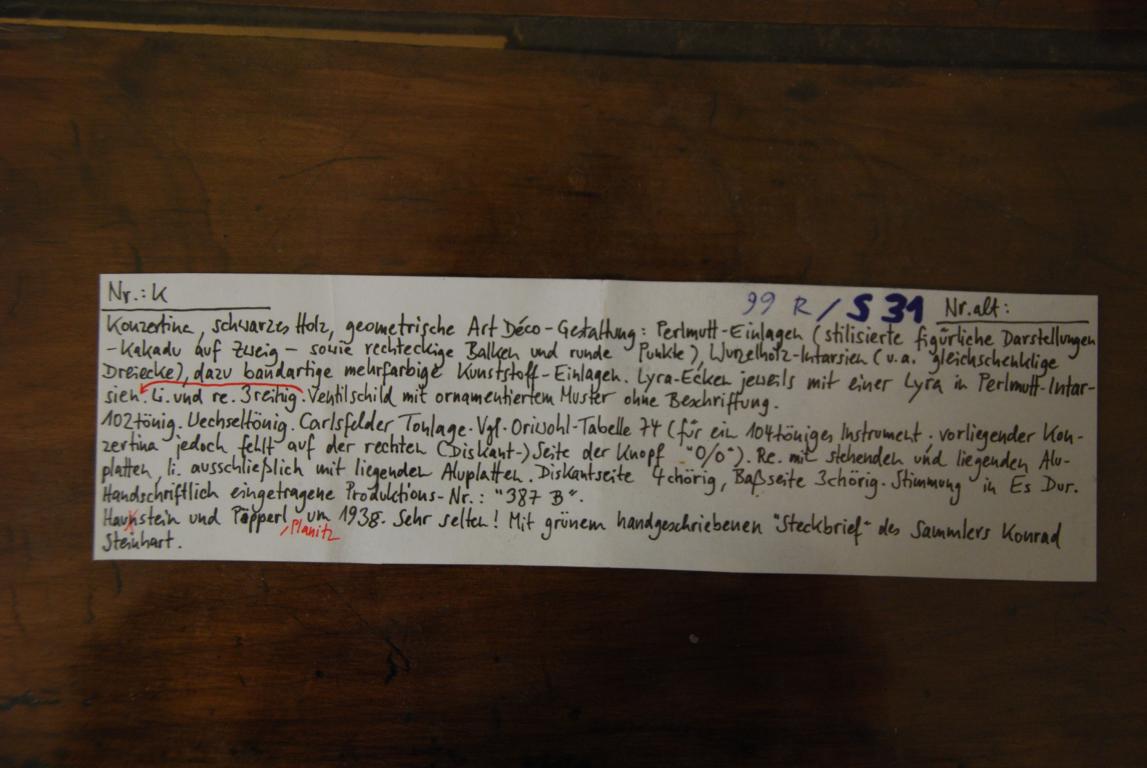 Nr.: K 99 R / S 31 Nr. alt:
Konzertina, schwarzes Holz, geometrische Art Déco-Gestaltung: Perlmutt-Einlagen (stilisierte figürliche Darstellungen
-Kakadu auf Zweig- sowie rechteckige Balken und runde Punkte), Wurzelholz-Intarsien (u.a. gleichschenklige
Dreiecke), dazu bandartige mehrfarbige Kunststoff-Einlagen. Lyra-Ecken jeweils mit einer Lyra in Perlmutt-Intar-
sien. Li. und re. 3reihig. Ventilschild mit ornamentiertem Muster ohne Beschriftung.
102tönig. Wechseltönig. Carlsfelder Tonlage. Vgl. Oriwohl-Tabelle 74 (für ein 104töniges Instrument. vorliegender Kon-
zertina jedoch fehlt auf der rechten (Diskant-) Seite der Knopf "0/0"). Re. mit stehenden und liegenden Alu-
platten, li. ausschließlich mit liegenden Aluplatten. Diskantseite 4chörig, Baßseite 3chörig. Stimmung in Es Dur.
Handschriftlich eingetragene Produktions-Nr.: "387 B".
Haunstein und Pöpperl um 1938. Sehr selten! Mit grünem handgeschriebenen "Steckbrief" des Sammlers Konrad
, Planitz
Steinhart.